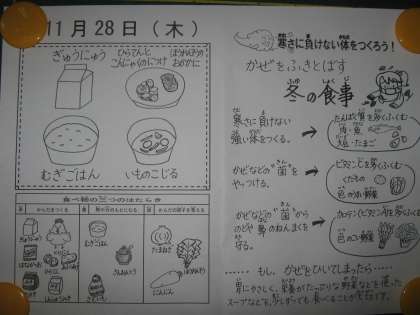 11月28日（木）
ぎゅうにゅう
ひらてんと
こんにゃくのにつけ
ほうれんそうの
おかかに
むぎごはん
いものこじる
食べ物の三つのはたらき
たまねぎ
にんじん
寒さに負けない体をつくろう！
かぜをふきとばす
冬の食事
寒さに負けない
強い体をつくる。
たんぱく質を多くふくむ
肉・魚
大豆・たまご
かぜなどの“菌”を
やっつける。
ビタミンCを多くふくむ
くだもの
色のうすい野菜
かぜなどの“菌”から
のどや鼻のねんまくを
守る。
カロテン(ビタミンA)を多くふくむ
色のこい野菜
……もし、かぜをひいてしまったら……
胃にやさしく、栄養がたっぷりな野菜などを使った
スープなどを、少しずつでも食べることが大切です。